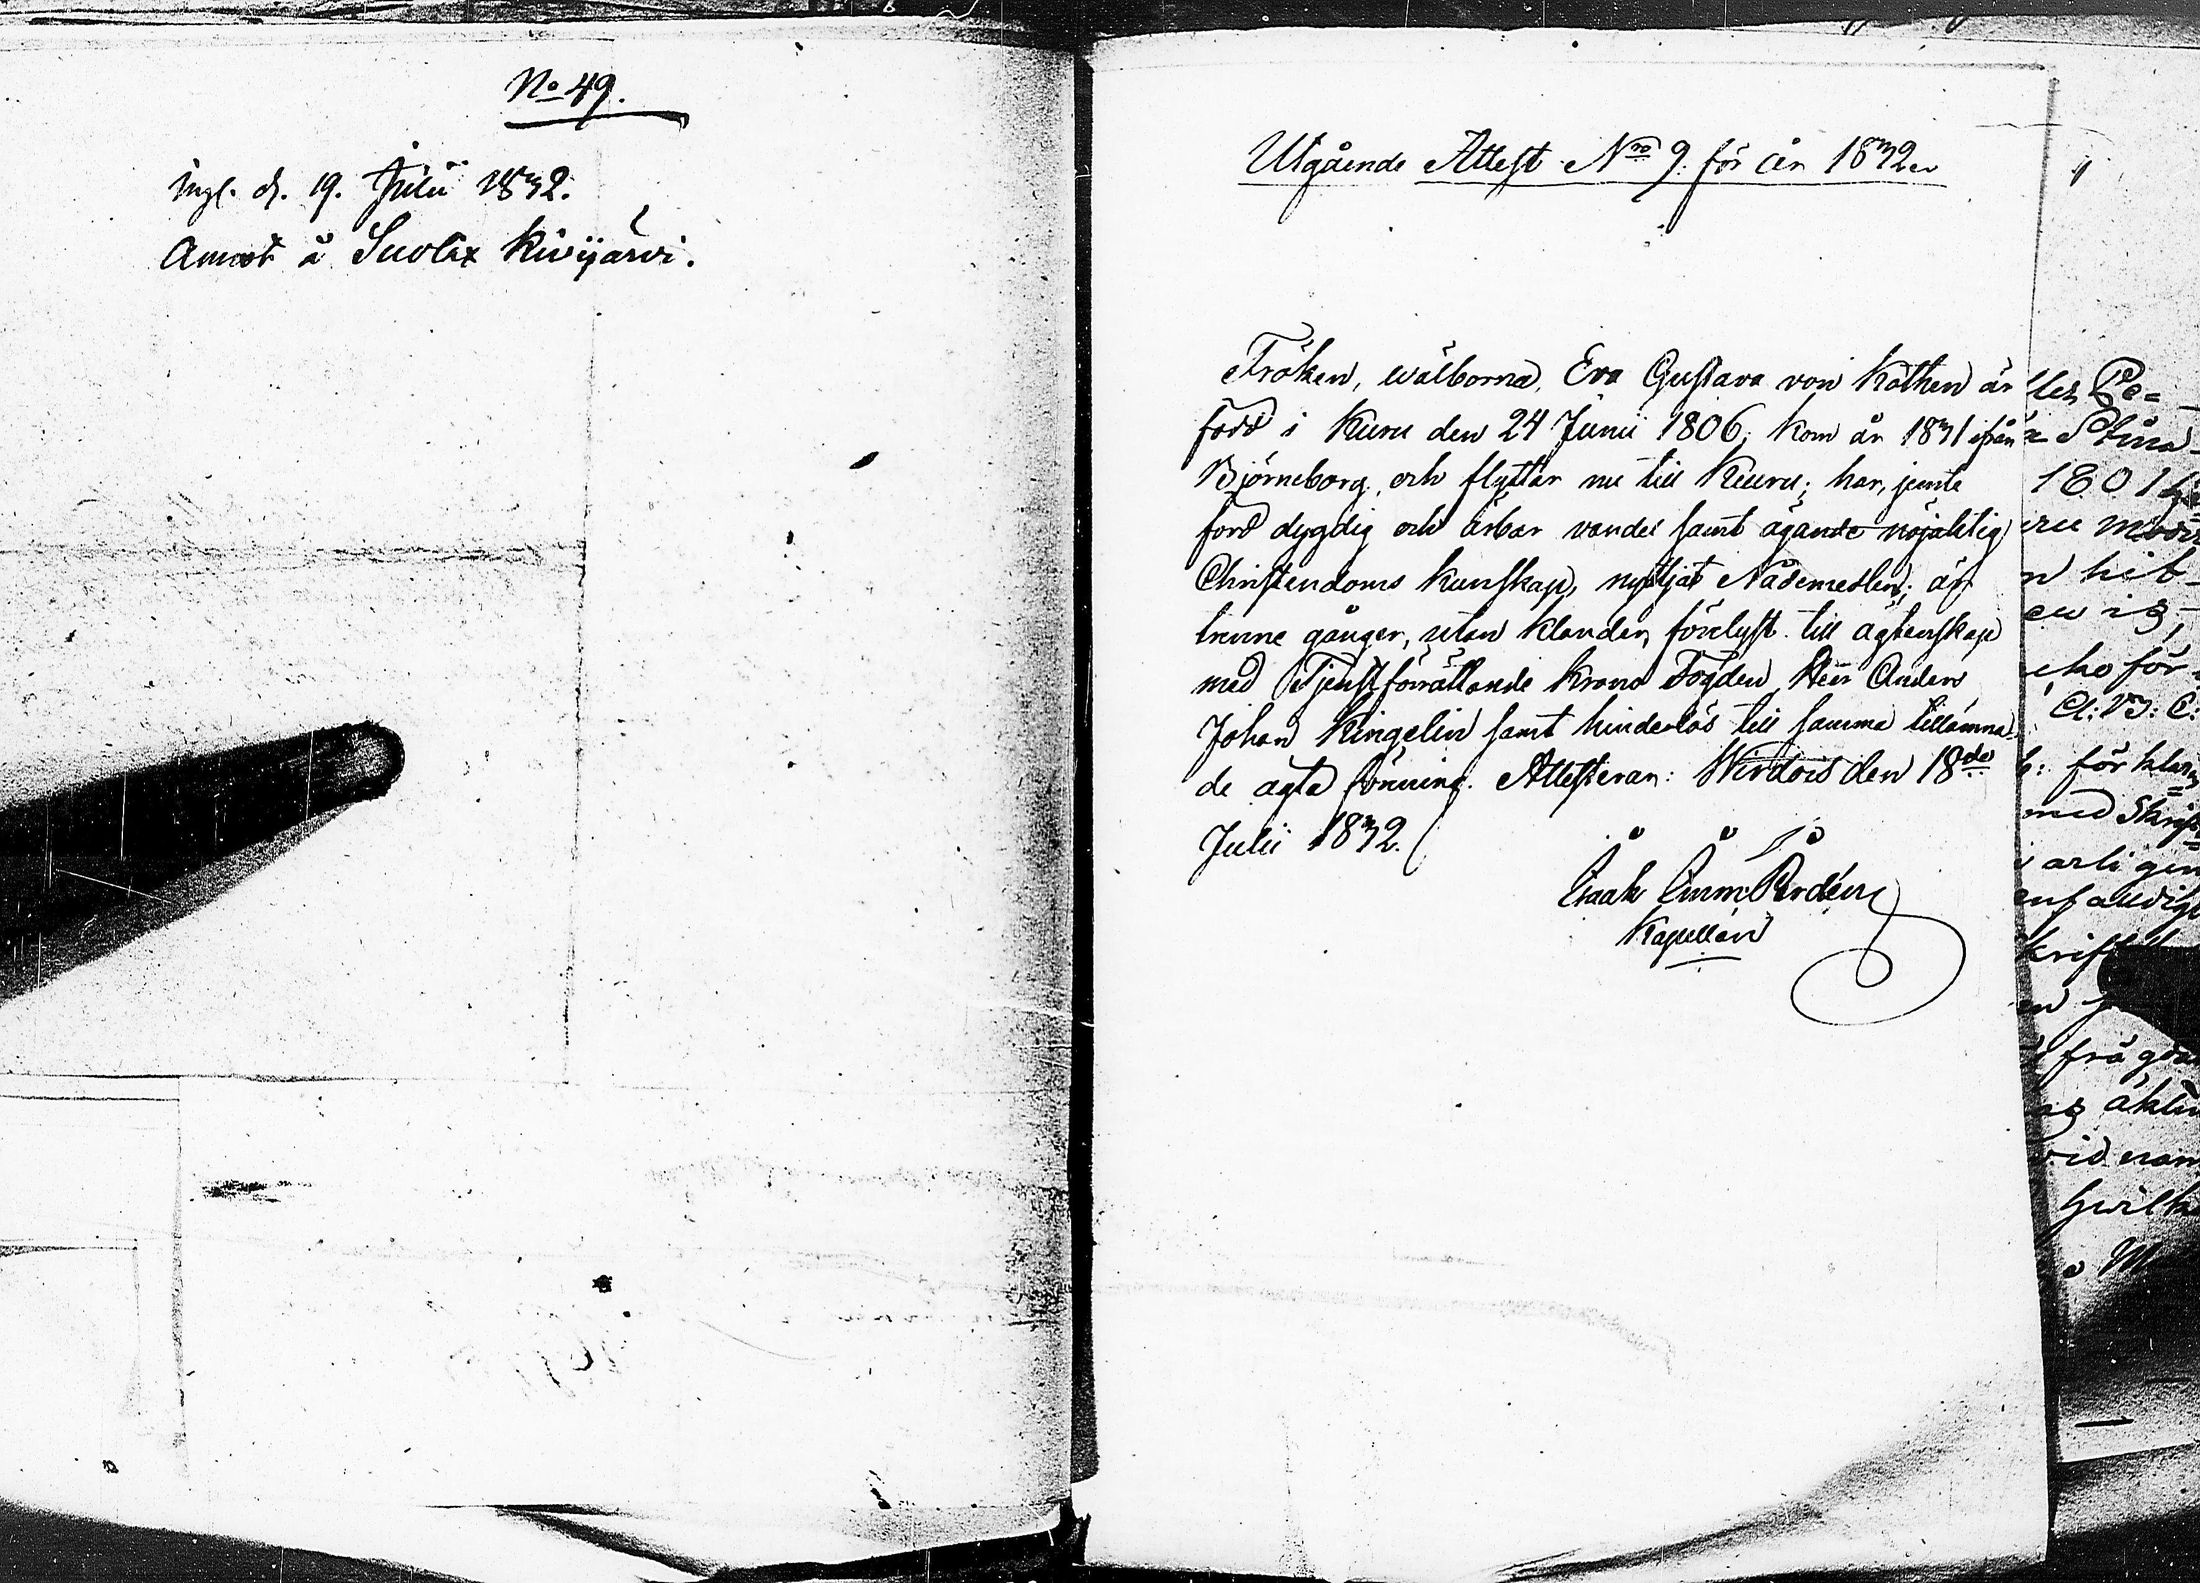 No 49.
ingl. d. 19. Julii 1832.
å Kivijärvi.
Utgående Attest Nro 9. för år 1832.
Fröken, wälborna, Eva Gustava von Köthen är
född i Kuru den 24 Junii 1806; kom år 1831 ifrån
Björneborg, och flyttar nu till Kuuru; har, jemte
ford dygdig och ärbar vandel samt ägande nöjaktig
Christendoms kunskap, nyttjat Nådemedlen; är
trenne gånger, utan klander, förelyst till ägtenskap
med Tjenstförrättande Krono Fogden Herr Anders
Johan Ringelin samt hinderlös till samma tillämna-
de ägta förening. Attesterar: Wirdois den 18de
Julii 1832.
Isaak Imm: Pordén
Kapellan
1801
n hit-
för
Cl:
h: för klar
med Skrif
frå
Hwilk